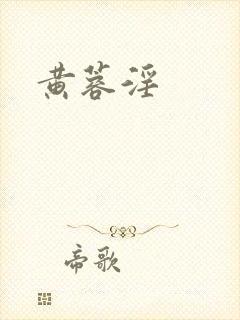 黄蓉淫
帝歌